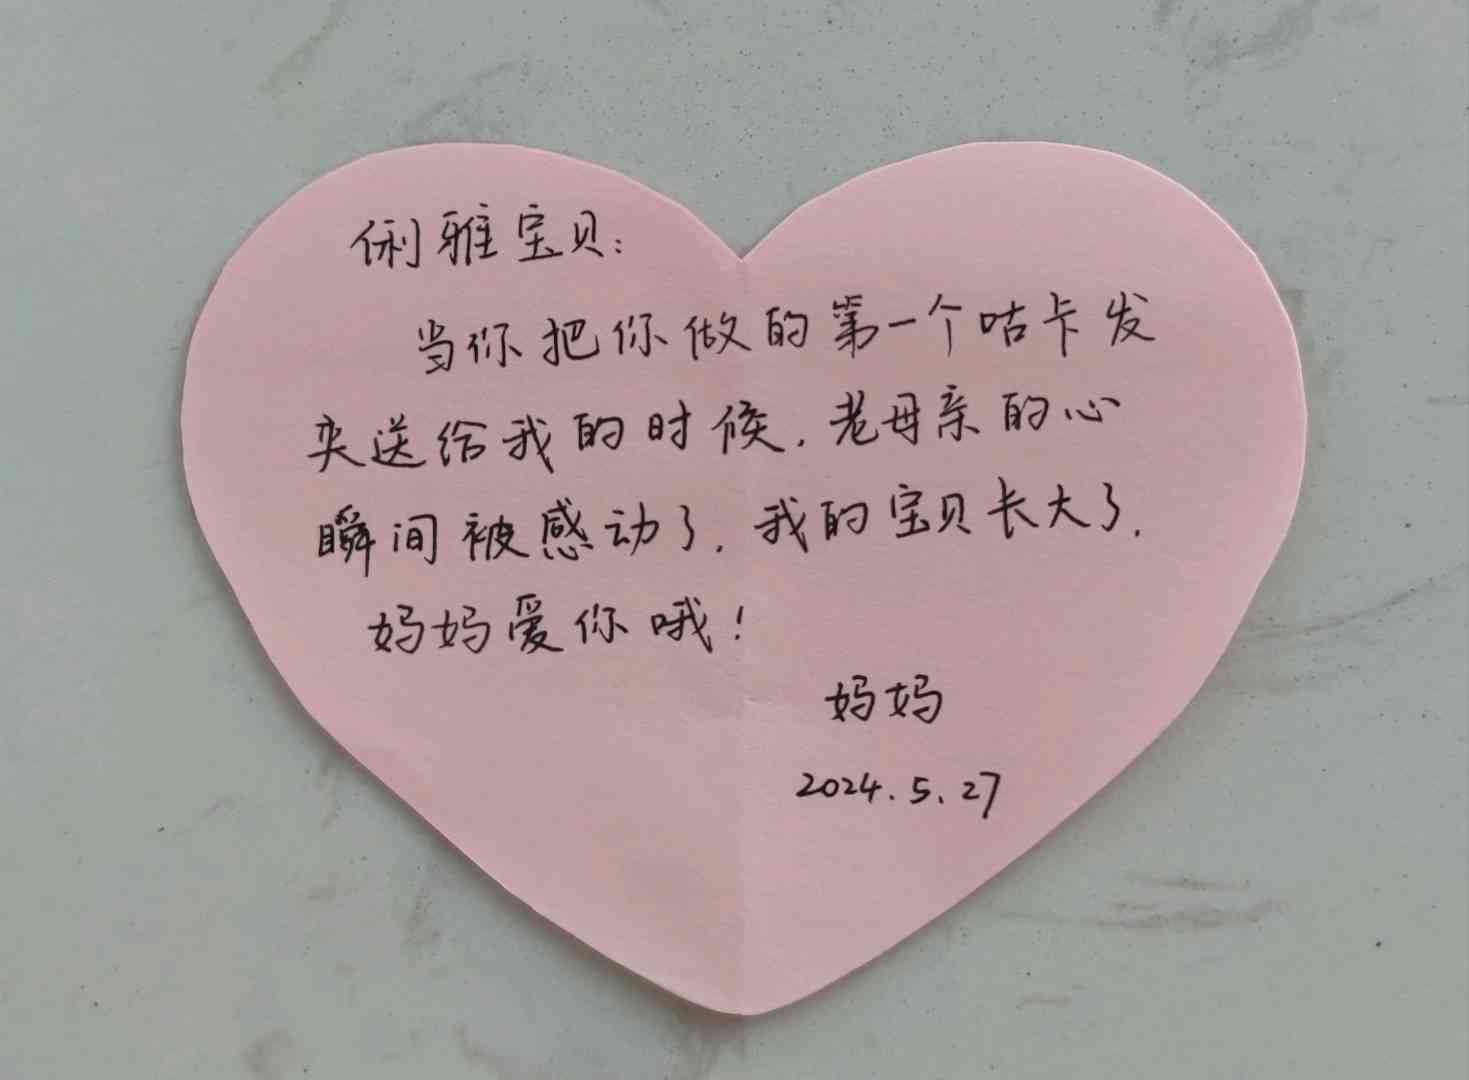 俐雅宝贝：
当你把你做的第一个咕卡发
夹送给我的时候，老母亲的心
瞬间被感动了，我的宝贝长大了，
妈妈爱你哦！
妈妈
2024.5.27